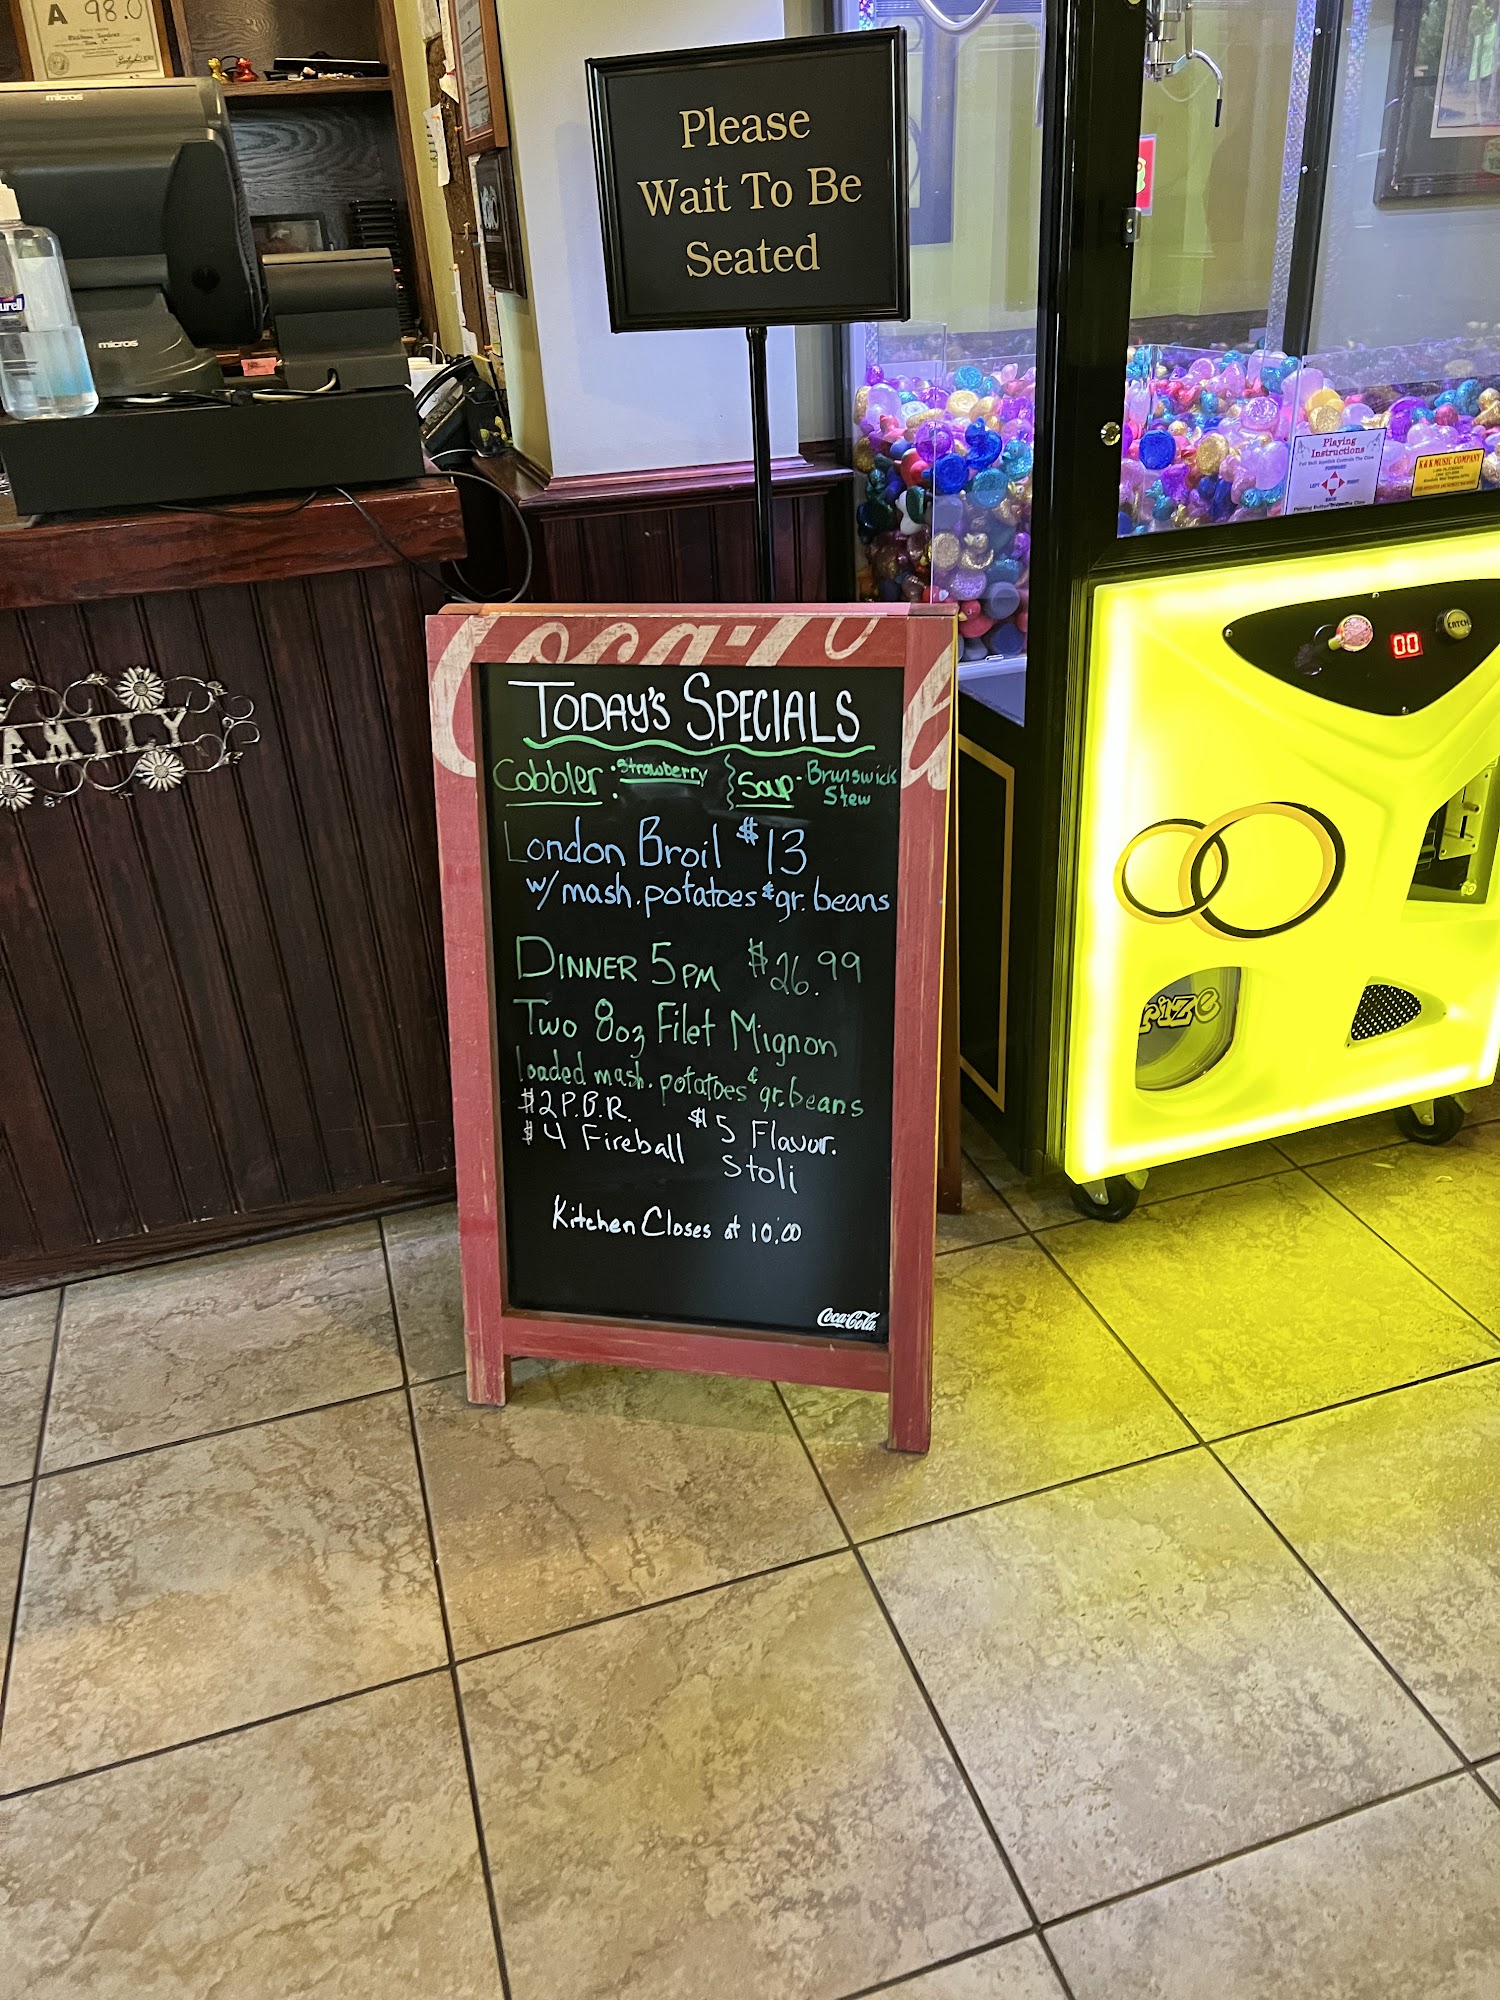 A 98.0
micros
micros
Please
Wait To Be
Seated
Playing
Instructions
FORWARD
LEFT
RIGHT
BACK
K & K MUSIC COMPANY
CATCH
00
AMILY
Coca-Co
TODAY'S SPECIALS
Cobbler: Strawberry } Soup - Brunswick
Stew
London Broil $13
w/ mash. potatoes & gr. beans
DINNER 5PM $26.99
Two 8oz Filet Mignon
loaded mash. potatoes & gr. beans
$2 P.B.R.
$4 Fireball
$5 Flavor.
Stoli
Kitchen Closes at 10:00
Coca-Cola